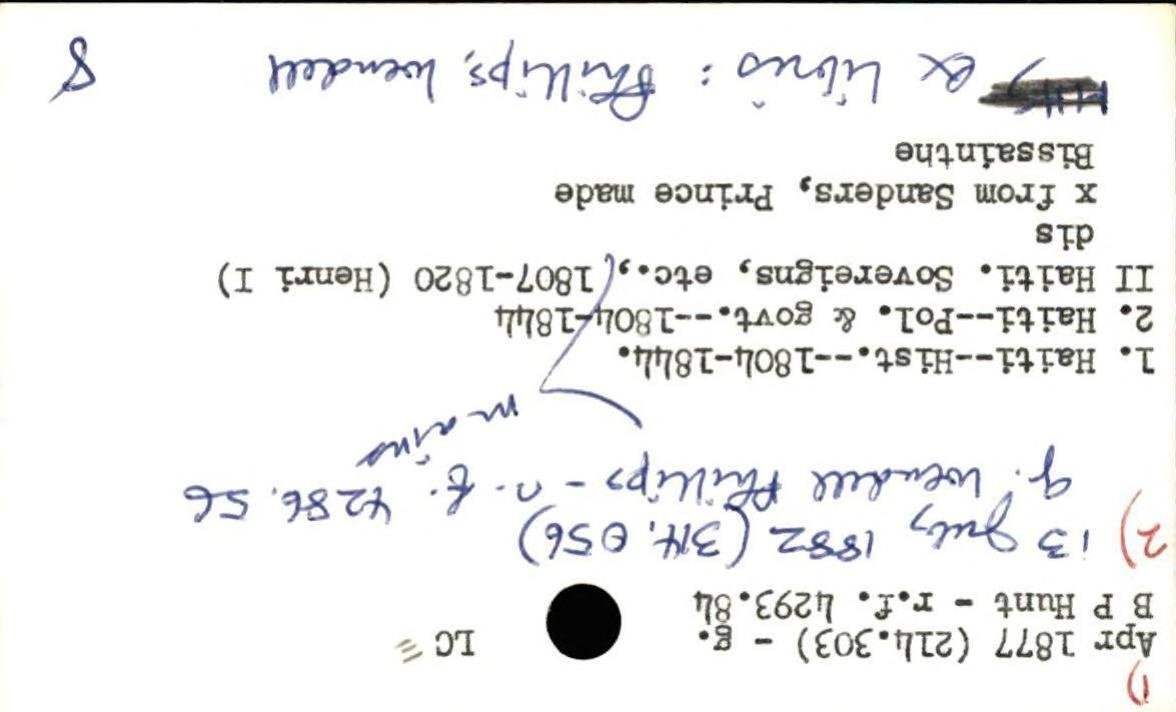 1)
Apr 1877 (214.303) - g. LC
B P Hunt - r.f. 4293.84
2) 13 July 1882 (314,056)
g. Wendell Phillips - n. f. 4286.56
mains
1. Haiti--Hist.--1804-1844.
2. Haiti--Pol. & govt.--1804-1844
II Haiti. Sovereigns, etc., 1807-1820 (Henri I)
dis
x from Sanders, Prince made
Bissainthe
ex libris: Phillips, Wendell 8